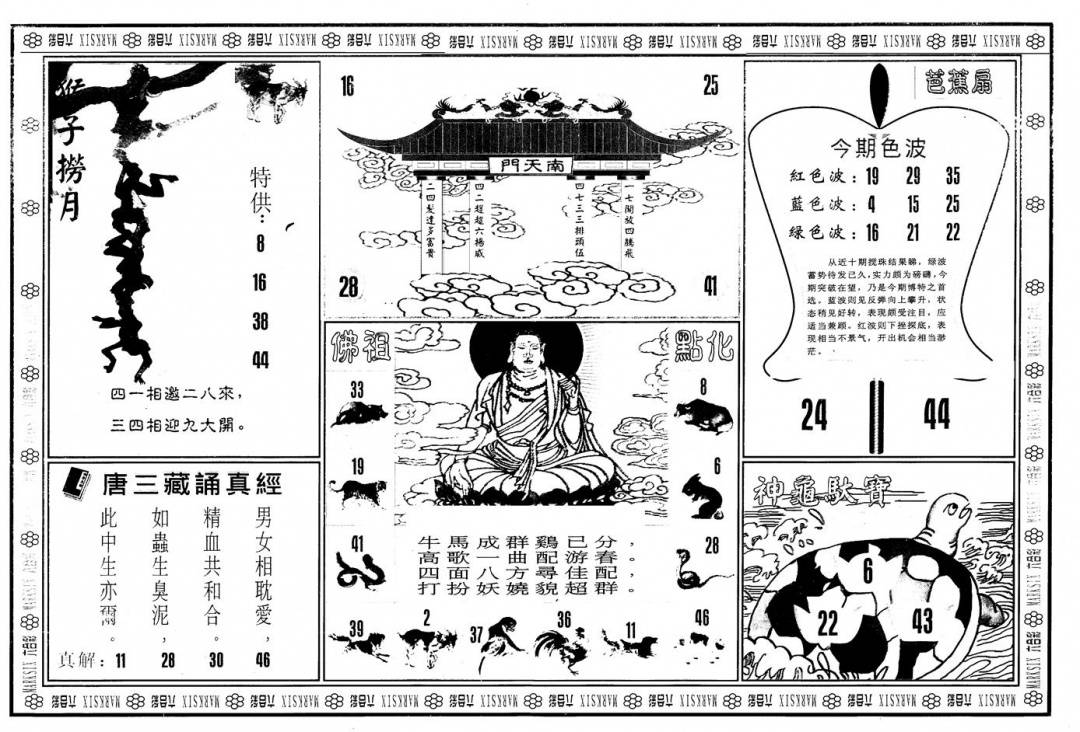 六合彩 MARKSIX
猴子撈月
特供：
8
16
38
44
四一相邀二八來，
三四相迎九大開。
16
25
南天門
二四發達多富貴
四二趕趕六揚威
四七三三排頭位
一七開放四騰飛
28
41
芭蕉扇
今期色波
紅色波：19 29 35
藍色波：4 15 25
綠色波：16 21 22
从近十期搅珠结果睇，绿波
蓄势待发已久，实力颇为磅礴，今
期突破在望，乃是今期博特之首
选。蓝波则见反弹向上攀升，状
态稍见好转，表现颇受注目，应
适当兼顾。红波则下挫探底，表
现相当不景气，开出机会相当渺
茫。
24
44
佛祖
點化
33
19
41
8
6
28
牛馬成群鷄已分，
高歌一曲配游春。
四面八方尋佳配，
打扮妖嬈貌超群。
39
2
37
36
11
46
唐三藏誦真經
男女相耽愛，
精血共和合。
如蟲生臭泥，
此中生亦爾。
真解：11 28 30 46
神龜馱寶
6
22
43